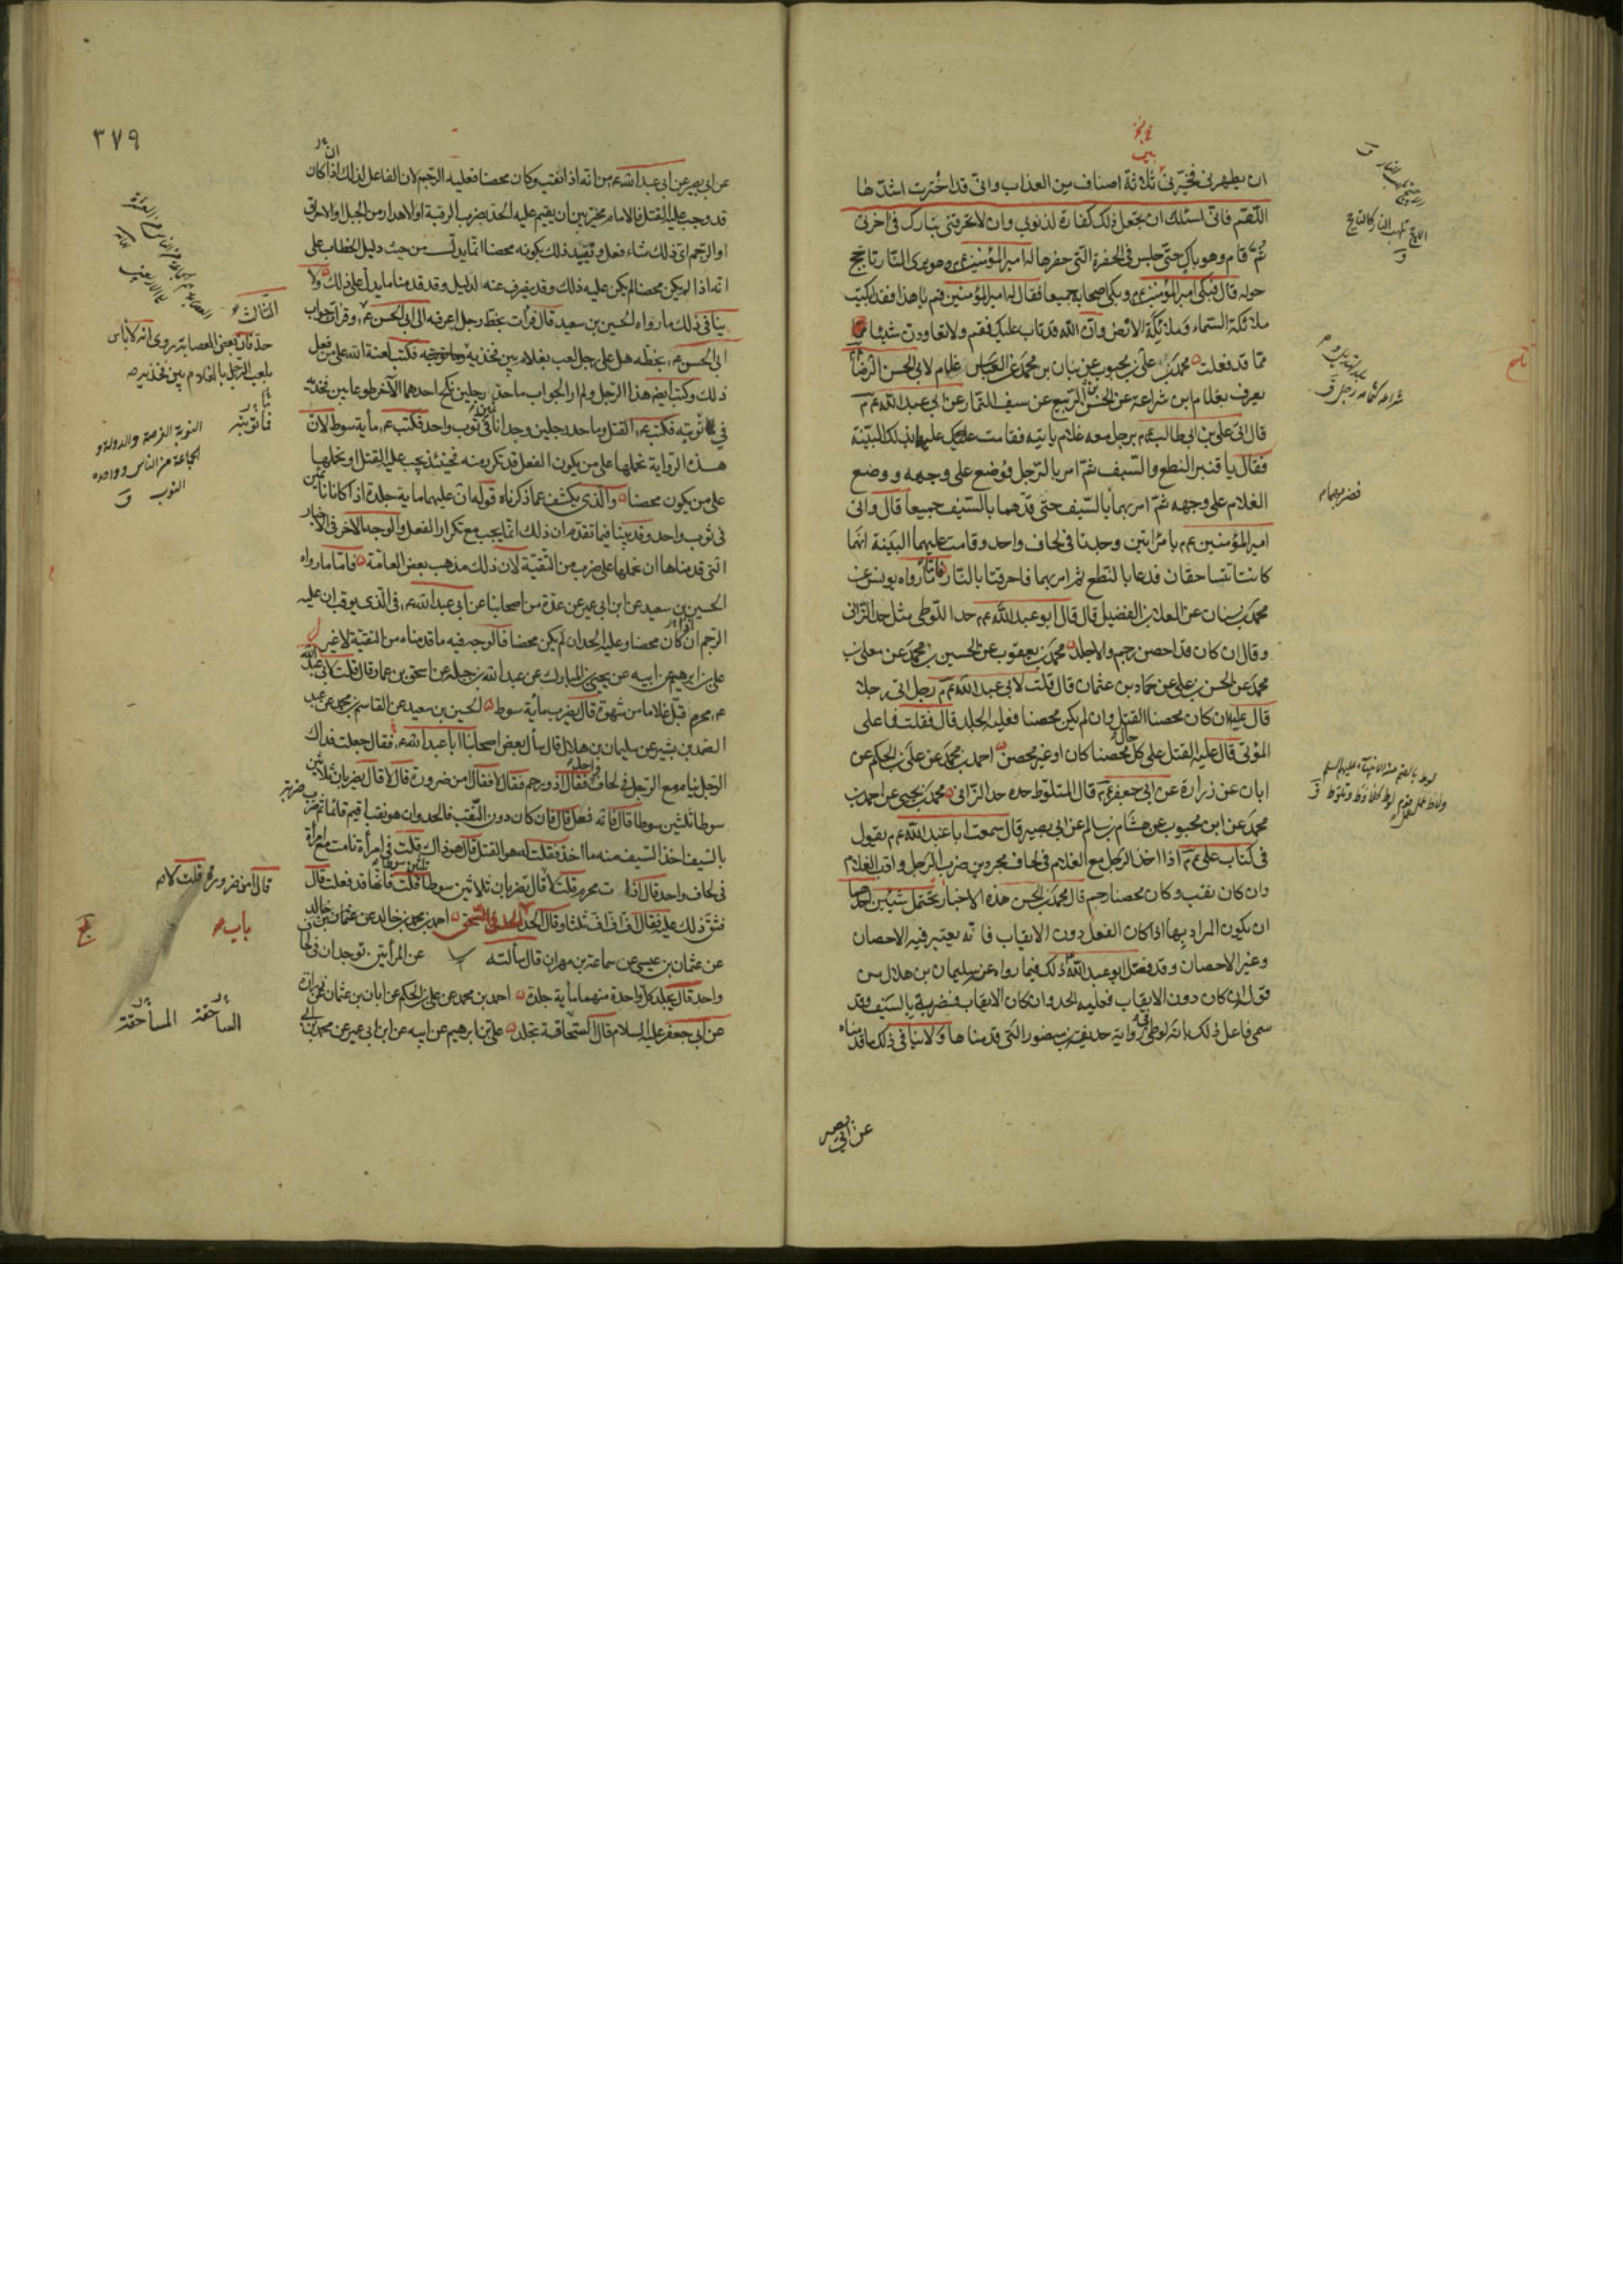 ان يطهرنى فخيّرنى ثلاثة اصناف من العذاب وانى قد اخترت اشدّها
اللّهم فانى اسئلك ان تجعل ذلك كفارة لذنوبى وان لا تحرقنى بنارك فى اخرتى
ثم قام وهو باك حتى جلس فى الحفرة التى حفرها له امير المؤمنين عم وهو يرى النار تاجج
حوله قال فبكى امير المؤمنين عم وبكى اصحابه جميعا فقال له امير المؤمنين قم يا هذا فقد ابكيت
ملائكة السماء وملائكة الارض وانّ الله قد تاب عليك فقم ولا تعاودن شيئا
ممّا قد فعلت محمد بن على بن محبوب عن بنان بن محمد عن العباس غلام لابى الحسن الرضا
يعرف بغلام ابن شراعة عن الحسن بن الربيع عن سيف التمار عن ابى عبد الله عم
قال اتى على بن ابى طالب عم برجل معه غلام ياتيه فقامت عليهما بذلك البيّنة
فقال يا قنبر النطع والسيف ثمّ امر بالرّجل فوضع على وجهه ووضع
الغلام على وجهه ثمّ امر بهما بالسّيف حتى قدّهما بالسّيف جميعا قال واتى
امير المؤمنين عم بامرأتين وجدتا فى لحاف واحد وقامت عليهما البيّنة انّهما
كانتا تتساحقان فدعا بالنطع ثم امر بهما فاحرقتا بالنّار فامّا ما رواه يونس عن
محمد بن سنان عن العلا بن الفضيل قال قال ابو عبد الله عم حدّ اللّوطى مثل حدّ الزانى
وقال ان كان قد احصن رجم والا جلد محمد بن يعقوب عن الحسين بن محمد عن معلى بن
محمد عن الحسن بن على عن حماد بن عثمان قال قلت لابى عبد الله عم رجل اتى رجلا
قال عليه ان كان محصنا القتل وان لم يكن محصنا فعليه الجلد قال فقلت فما على
المؤتى قال عليه القتل على كل حال محصنا كان او غير محصن احمد بن محمد عن على بن الحكم عن
ابان عن زرارة عن ابى جعفر عم قال المتلوّط حدّه حدّ الزّانى محمد بن يحيى عن احمد بن
محمد عن ابن محبوب عن هشام بن سالم عن ابى بصير قال سمعت ابا عبد الله عم يقول
فى كتاب على عم اذا اخذ الرّجل مع الغلام فى لحاف مجردين ضرب الرّجل وادّب الغلام
وان كان نقب وكان محصنا رجم قال محمد بن الحسن هذه الاخبار تحتمل شيئين احدهما
ان يكون المراد بها اذا كان الفعل دون الايقاب فانّه يعتبر فيه الاحصان
وغير الاحصان وقد فصّل ابو عبد الله ذلك فيما رواه عن سليمان بن هلال من
قوله ان كان دون الايقاب فعليه الحد وان كان الايقاب فضربة بالسّيف وقد
سمى فاعل ذلك بانّه لوطى فى رواية حذيفة بن منصور التى قدمناها ولا ينافى ذلك ما قدمناه
عن ابى بصير
٣٧٩
عن ابى بصير عن ابى عبد الله عم من انه اذا نقب وكان محصنا فعليه الرجم لان الفاعل لذلك اذا كان
قد وجب عليه القتل فالامام مخيّر بين ان يقيم عليه الحدّ بضرب الرقبة او الاهدار من الجبل والاحراق
او الرجم اىّ ذلك شاء فعل وتقييد ذلك بكونه محصنا انّما يدلّ من حيث دليل الخطاب على
انه اذا لم يكن محصنا لم يكن عليه ذلك وقد يصرف عنه لدليل وقد قدمنا ما يدلّ على ذلك ولا
ينافى ذلك ما رواه الحسين بن سعيد قال قرأت بخطّ رجل اعرفه الى ابى الحسن عم وقرأت جواب
ابى الحسن عم بخطّه هل على رجل لعب بغلام بين فخذيه حد فكتب لعنة الله على من فعل
ذلك وكتب ايضا هذا الرجل ولم ار الجواب ما حدّ رجلين نكح احدهما الآخر طوعا بين فخذيه
توبته فكتب عم القتل وما حد رجلين وجدا نائمين فى ثوب واحد فكتب عم مأية سوط لانّ
هذه الرواية نحملها على من يكون الفعل قد تكرر منه فحينئذ يجب عليه القتل او نحملها
على من يكون محصنا والّذى يكشف عما ذكرناه قوله انّ عليهما ماية جلدة اذا كانا نائمين
فى ثوب واحد وقد بيّنا فيما تقدم ان ذلك انّما يجب مع تكرار الفعل والوجه الاخر فى الاخبار
التى قدمناها ان نحملها على ضرب من التقيّة لان ذلك مذهب بعض العامّة فامّا ما رواه
الحسين بن سعيد عن ابن ابى عمير عن عدّة من اصحابنا عن ابى عبد الله عم فى الّذى يوقب ان عليه
الرجم ان كان محصنا وعليه الحد ان لم يكن محصنا فالوجه فيه ما قدمناه من التقيّة لا غير
على بن ابرهيم عن ابيه عن يحيى بن المبارك عن عبد الله بن جبلة عن اسحق بن عمار قال قلت لابى عبد الله
عم محرم قبّل غلاما من شهوة قال يضرب مأية سوط الحسين بن سعيد عن القاسم بن محمد عن عبد
الصّمد بن بشير عن سليمان بن هلال قال سأل بعض اصحابنا ابا عبد الله عم فقال جعلت فداك
الرّجل ينام مع الرّجل فى لحاف واحد فقال اذو رحم فقال لا فقال امن ضرورة قال لا قال يضربان ثلاثين
سوطا ثلثين سوطا قال فانّه فعل قال فان كان دون الثّقب فالحد وان هو نقب اقيم قائما ثم ضرب ضربة
بالسّيف اخذ السّيف منه ما اخذ فقلت له هو القتل قال هو ذاك قلت فى امرأة نامت مع امرأة
فى لحاف واحد قال اذا ت محرم قلت لا قال تضربان ثلاثين سوطا ثلثين سوطا قلت فانّها قد فعلت قال
فشقّ ذلك عليه فقال اف اف اف ثلثا وقال الحد الحد فى السّحق احمد بن محمد بن خالد عن
عن عثمان بن عيسى عن سماعة بن مهران قال سألته عن المرأتين توجدان فى لحاف
واحد قال يجلد كل واحدة منهما مأية جلدة احمد بن محمد عن على بن الحكم عن ابان بن عثمان عن زرارة
عن ابى جعفر عليه السلام قال السحّاقة تجلد على بن ابرهيم عن ابيه عن ابن ابى عمير عن محمد بن ابى
الثالث
يلعب الرّجل بالغلام بين فخذيه
النوبة الفرصة والدولة و
الجماعة من الناس وواحدة
النوب ق
قال امن ضرورة قلت لا
باب
الساحقة المساحقة